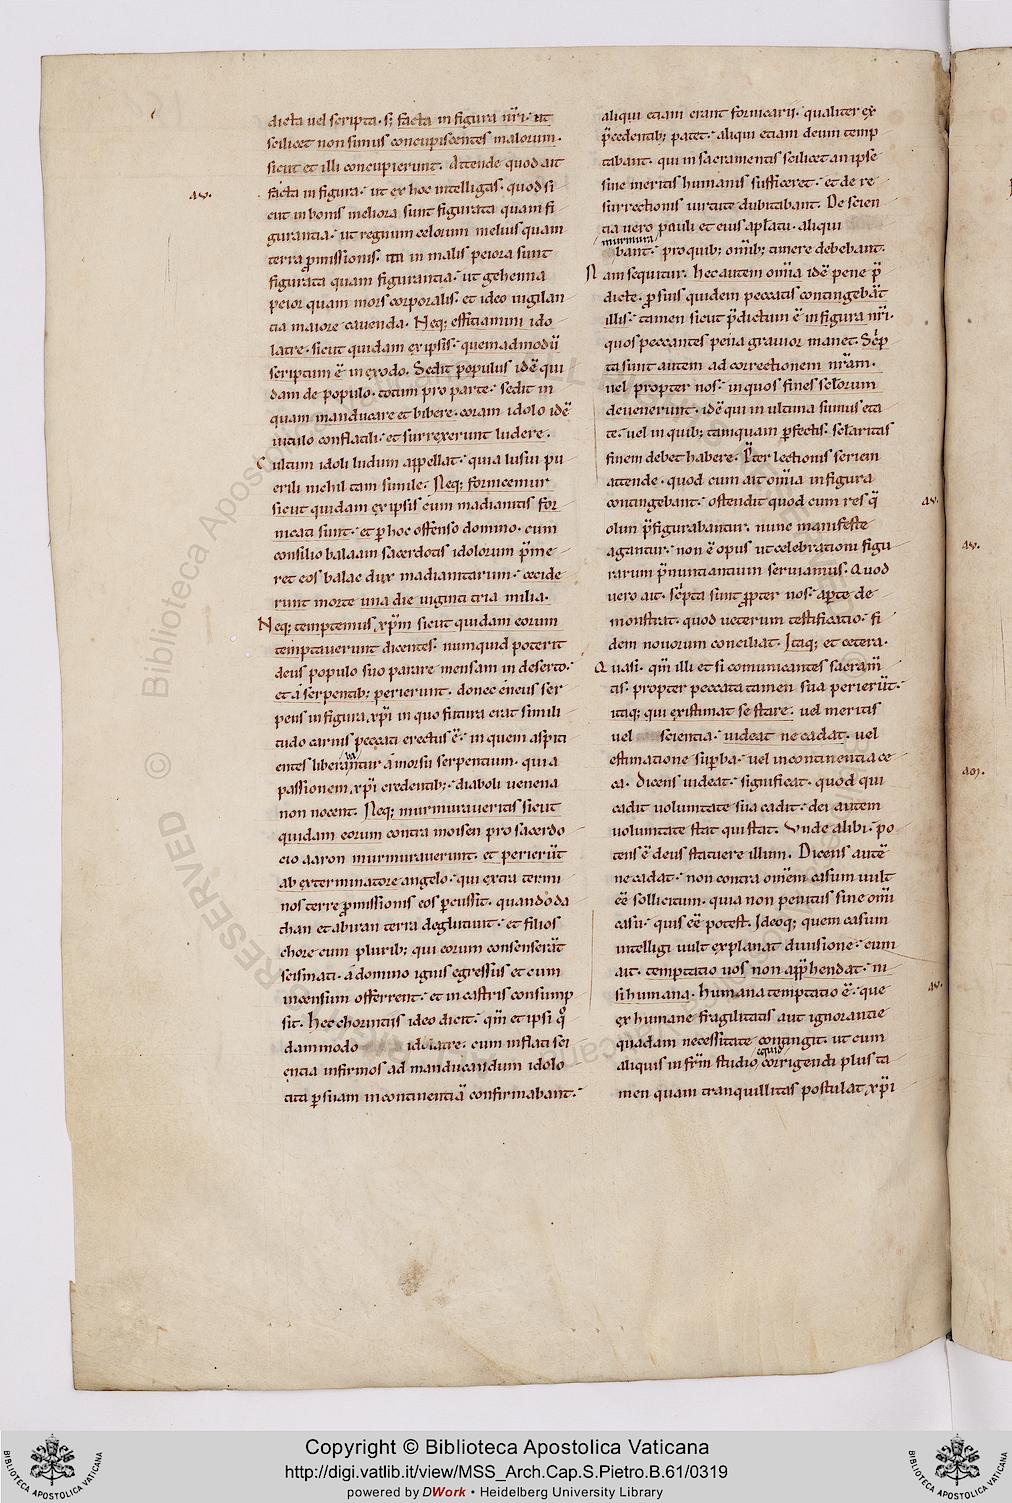 dicta uel scripta. s; facta in figura nr̄i. ut
scilicet non simus concupiscentes malorum.
sicut et illi concupierunt. Attende quod ait
facta in figura. ut ex hoc intelligas. quod si
cut in bonis meliora sunt figurata quam fi
gurantia. ut regnum celorum melius quam
terra p̱missionis. ita in malis peiora sunt
figurata quam figurantia. ut gehenna
peior quam mors corporalis. et ideo uigilan
tia maiore cauenda. Neq; efficiamini ido
latre. sicut quidam ex ipsis. quemadmodū
scriptum ē in exodo. Sedit populus idē qui
dam de populo. totum pro parte. sedit in
quam manducare et bibere. coram idolo idē
uitulo conflatili. et surrexerunt ludere.
Cultum idoli ludum appellat. quia lusui pu
erili nichil tam simile. Neq; fornicemur
sicut quidam ex ipsis cum madianitis for
nicati sunt. et p̱ hoc offenso domino. cum
consilio balaam sacerdotis idolorum p̄me
ret eos balac dux madianitarum. cecide
runt morte una die uiginti tria milia.
Neq; temptemus xp̄m sicut quidam eorum
temptauerunt dicentes. numquid poterit
deus populo suo parare mensam in deserto.
et a serpentib; perierunt. donec eneus ser
pens in figura xp̄i in quo futura erat simili
tudo carnis peccati erectus ē. in quem aspici
entes liberantur a morsu serpentium. quia
passionem xp̄i credentib; diaboli uenena
non nocent. Neq; murmuraueritis sicut
quidam eorum contra moisen pro sacerdo
cio aaron murmurauerunt. et perierūt
ab exterminatore angelo. qui extra termi
nos terre p̱missionis eos p̱cussit. quando da
than et abiran terra deglutiuit. et filios
chore cum plurib; qui eorum consenserāt
scismati. a domino ignis egressus et cum
incensum offerrent. et in castris consump
sit. Hec chorintiis ideo dicit. qm̄ et ipsi q°
dammodo idolatre. cum inflati sci
entia infirmos ad manducandum idolo
tita p̱ suam incontinentiā confirmabant.
aliqui etiam erant fornicarii. qualiter ex
p̄cedentib; patet. aliqui etiam deum temp
tabant. qui in sacramentis scilicet an ipse
sine meritis humanis sufficeret. et de re
surrectionis uirtute dubitabant. De scien
tia uero pauli et eius ap̄latu. aliqui
murmura
bant. pro quib; om̄ib; timere debebant.
Nam sequitur. hec autem om̄ia idē pene p̄
dicte. p̱ sius quidem peccatis contingebāt
illis. tamen sicut p̄dictum ē in figura nr̄i.
quos peccantes pena grauior manet. Scp̄
ta sunt autem ad correctionem nr̄am.
uel propter nos. in quos fines sclorum
deuenerunt. idē qui in ultima sumus eta
te. uel in quib; tamquam p̱fectis. sclaritas
finem debet habere. P̄ter lectionis seriem
attende. quod cum ait om̄ia in figura
contingebant. ostendit quod cum res q̄
olim p̄figurabantur. nunc manifeste
agantur. non ē opus ut celebrationi figu
rarum p̄nuntiantium seruiamus. Quod
uero ait. scp̄ta sunt ppter nos. ap̱te de
monstrat. quod ueterum testificatio. fi
dem nouorum conciliat. Itaq; et cetera.
Quasi. qm̄ illi et si comunicantes sacram̄
tis. propter peccata tamen sua perierūt.
itaq; qui existimat se stare. uel meritis
uel scientia. uideat ne cadat. uel
estimatione sup̱ba. uel incontinentia ce
ca. Dicens uideat. significat. quod qui
cadit uoluntate sua cadit. dei autem
uoluntate stat qui stat. Vnde alibi. po
tens ē deus statuere illum. Dicens autē
ne cadat. non contra om̄em casum uult
ēē sollicitum. quia non penitus sine om̄i
casu. quis ēē potest. Ideoq; quem casum
intelligi uult explanat diuisione. cum
ait. temptatio uos non app̄hendat. ni
si humana. Humana temptatio ē. que
ex humane fragilitatis aut ignorantie
quadam necessitate contingit. ut cum
aliquis in frm̄ studio corrigendi plus ta
men quam tranquillitas postulat xp̄i
av.
av.
av.
av.
Copyright © Biblioteca Apostolica Vaticana
http://digi.vatlib.it/view/MSS_Arch.Cap.S.Pietro.B.61/0319
powered by DWork • Heidelberg University Library
BIBLIOTECA APOSTOLICA VATICANA
BIBLIOTECA APOSTOLICA VATICANA